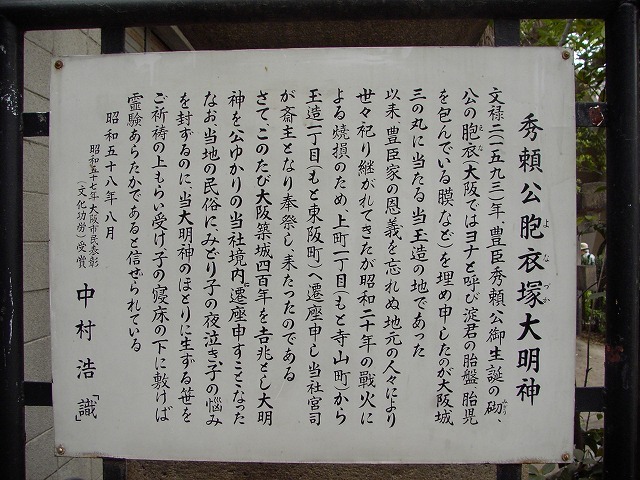 秀頼公胞衣塚大明神
よなづか
文禄二(一五九三)年、豊臣秀頼公御生誕の砌、
みぎり
公の胞衣(大阪ではヨナと呼び淀君の胎盤 胎児
えな
を包んでいる膜など)を埋め申したのが大阪城
三の丸に当たる当玉造の地であった
以来 豊臣家の恩義を忘れぬ地元の人々により
世々祀り継がれてきたが昭和二十年の戦火に
よる焼損のため 上町一丁目(もと寺山町)から
玉造一丁目(もと東阪町)へ遷座申し当社宮司
が斎主となり奉祭し来たったのである
さて このたび大阪築城四百年を吉兆とし大明
神を公ゆかりの当社境内に遷座申すことになった
なお当地の民俗に、みどり子の夜泣き、子の悩み
を封ずるのに、当大明神のほとりに生ずる笹を
ご祈祷の上もらい受け子の寝床の下に敷けば
霊験あらたかであると信ぜられている
昭和五十八年八月
昭和五十七年大阪市民表彰
(文化功労)受賞
中村浩「識」